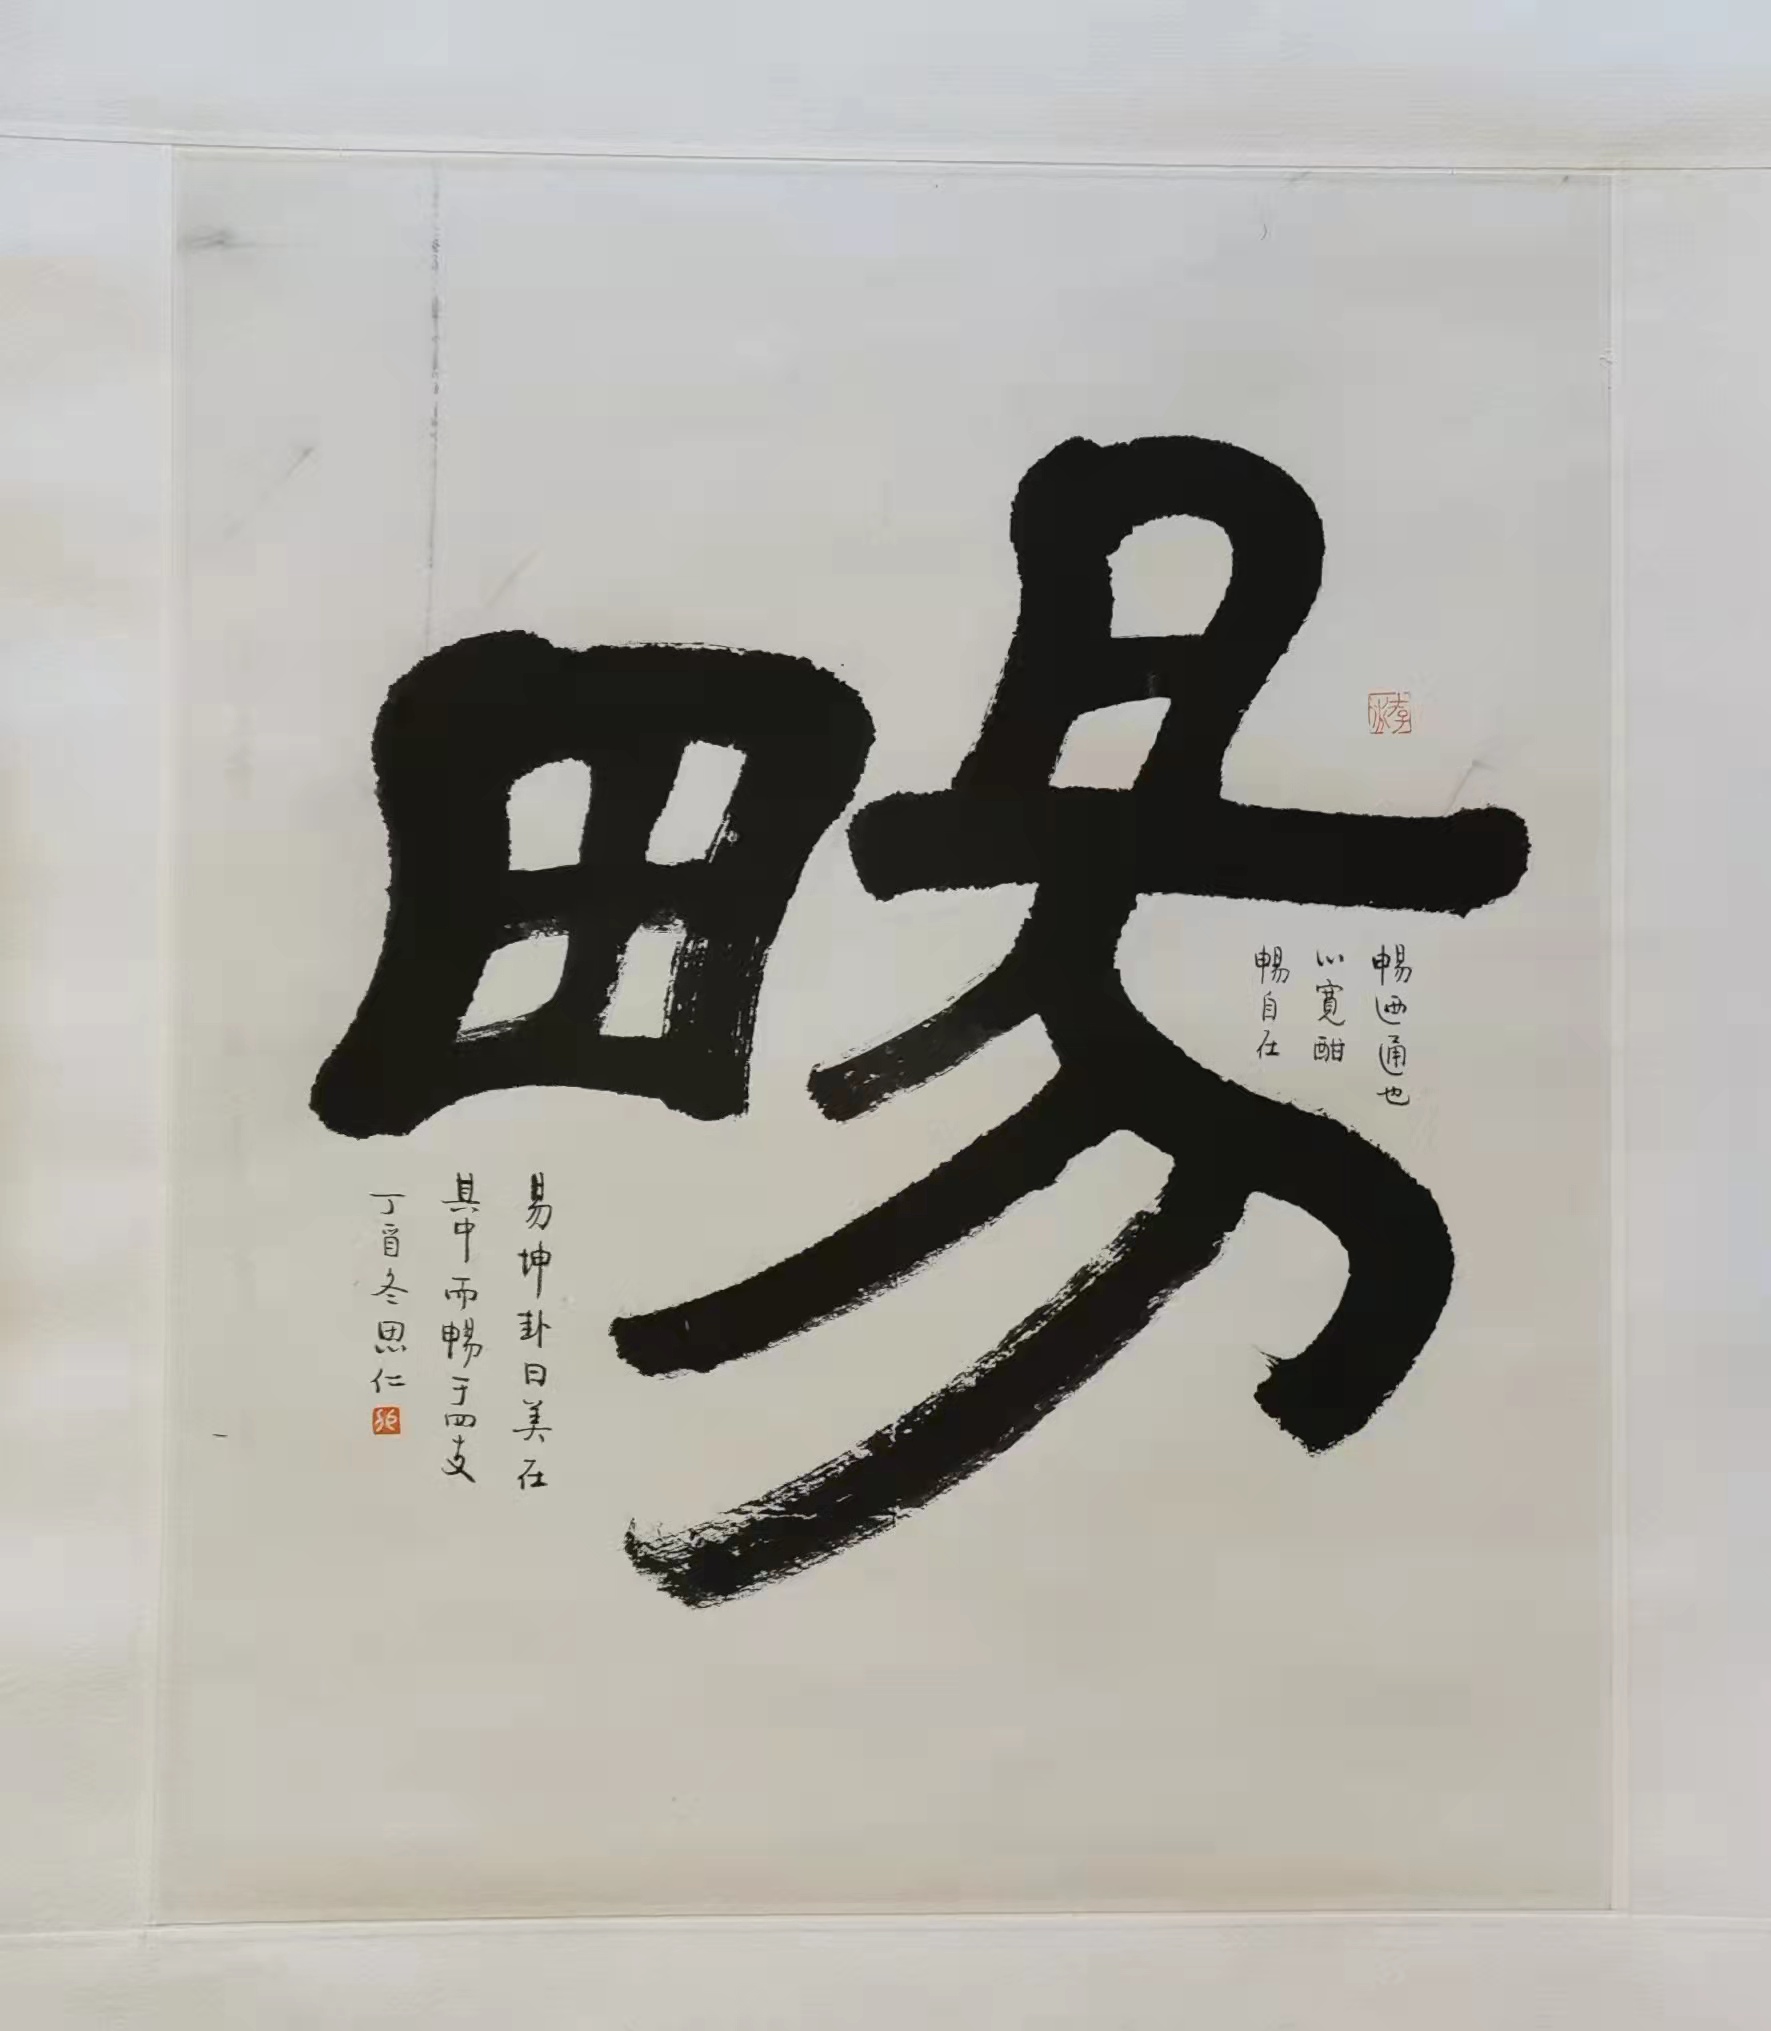 畼
暢迺通也
心寬酣
暢自在
易坤卦曰美在
其中而暢于四支
丁酉冬思仁